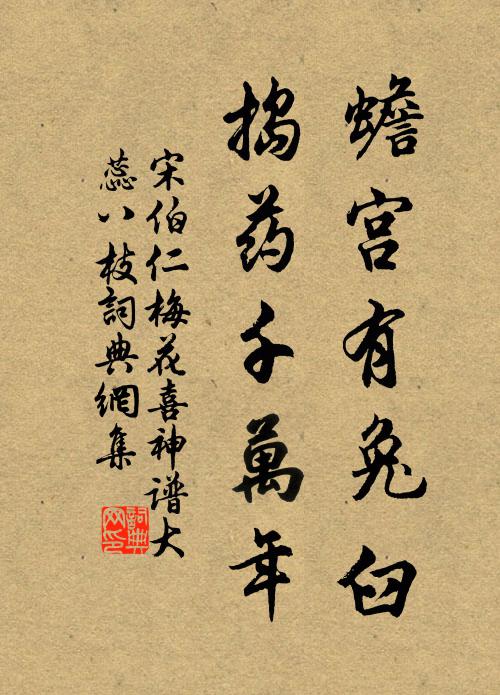 蟾宫有兔臼
搗药千萬年
宋伯仁梅花喜神谱大
蕊八枝詞典網集
詞典网印